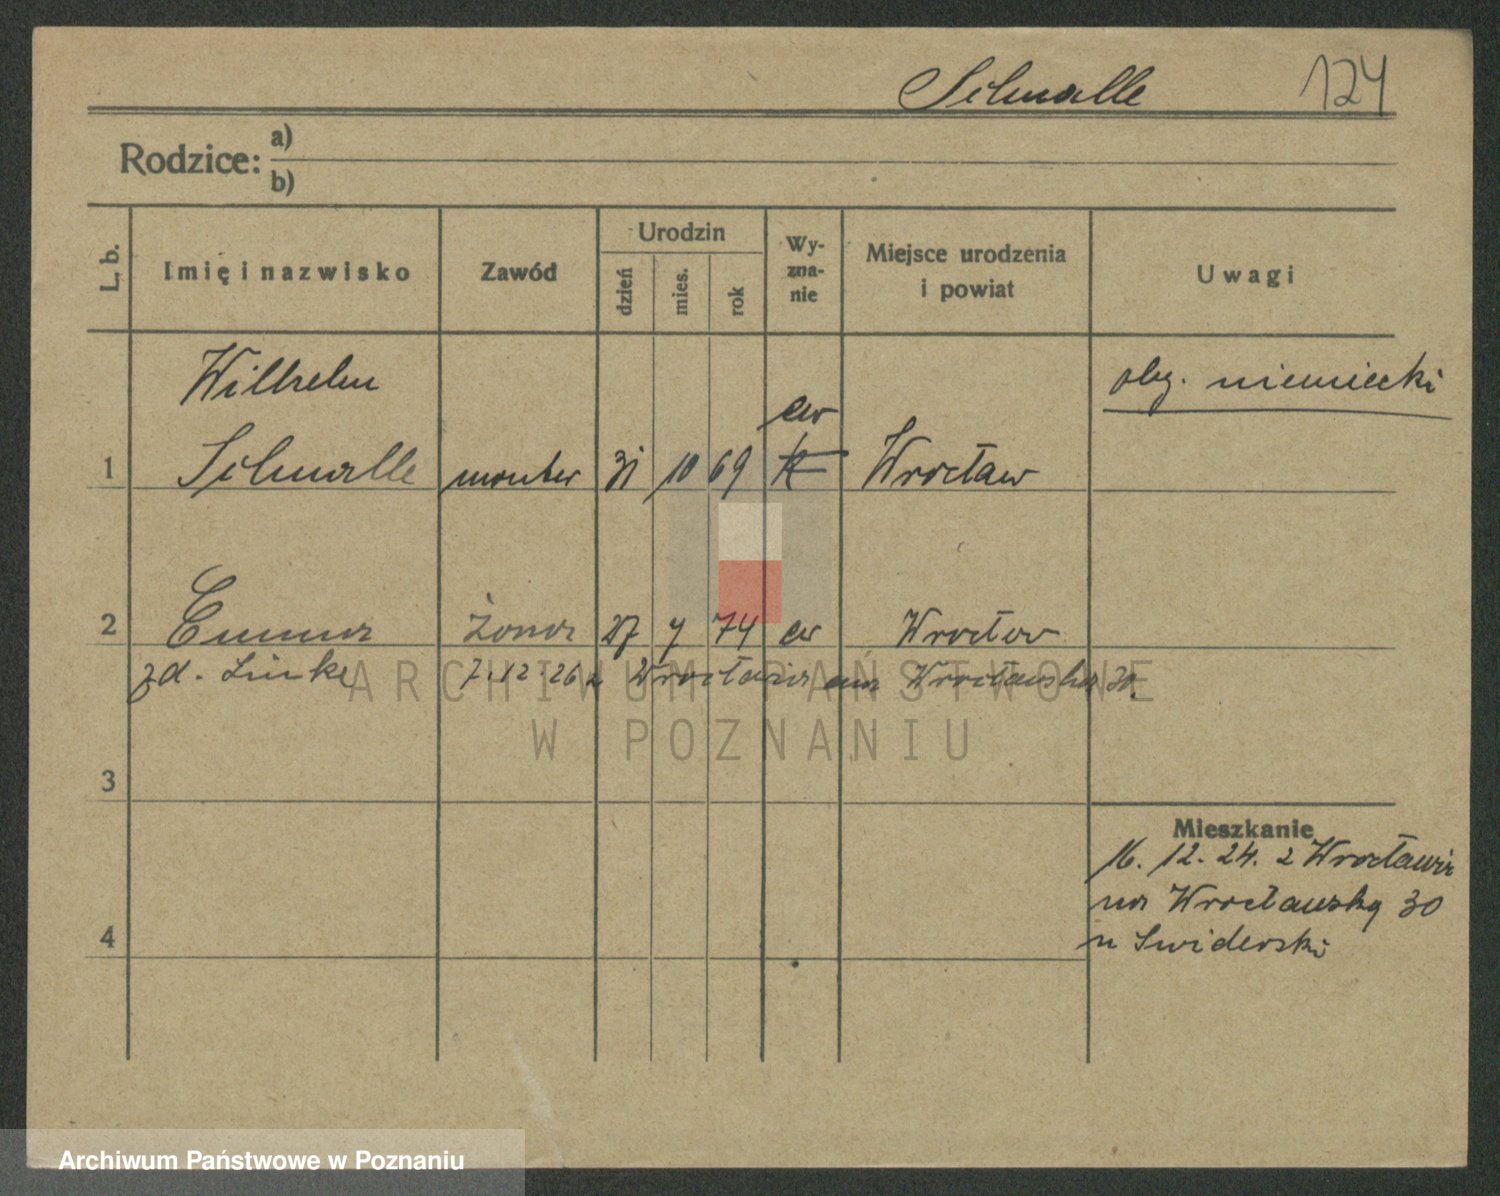 Schmalle 124
Rodzice: a)
b)
L. b.
Imię i nazwisko
Zawód
Urodzin
dzień
mies.
rok
Wy-
zna-
nie
Miejsce urodzenia
i powiat
Uwagi
Wilhelm
obg. niemiecki
ew
1 Schmalle monter 31 10 69 k Wrocław
2 Emma żona 27 7 74 ew Wrocław
zd. Linke 7.12.26 z Wrocławia na Wrocławska 30.
3
Mieszkanie
16. 12. 24. z Wrocławia
na Wrocławską 30
u Swiderski
4
ARCHIWUM PAŃSTWOWE
W POZNANIU
Archiwum Państwowe w Poznaniu